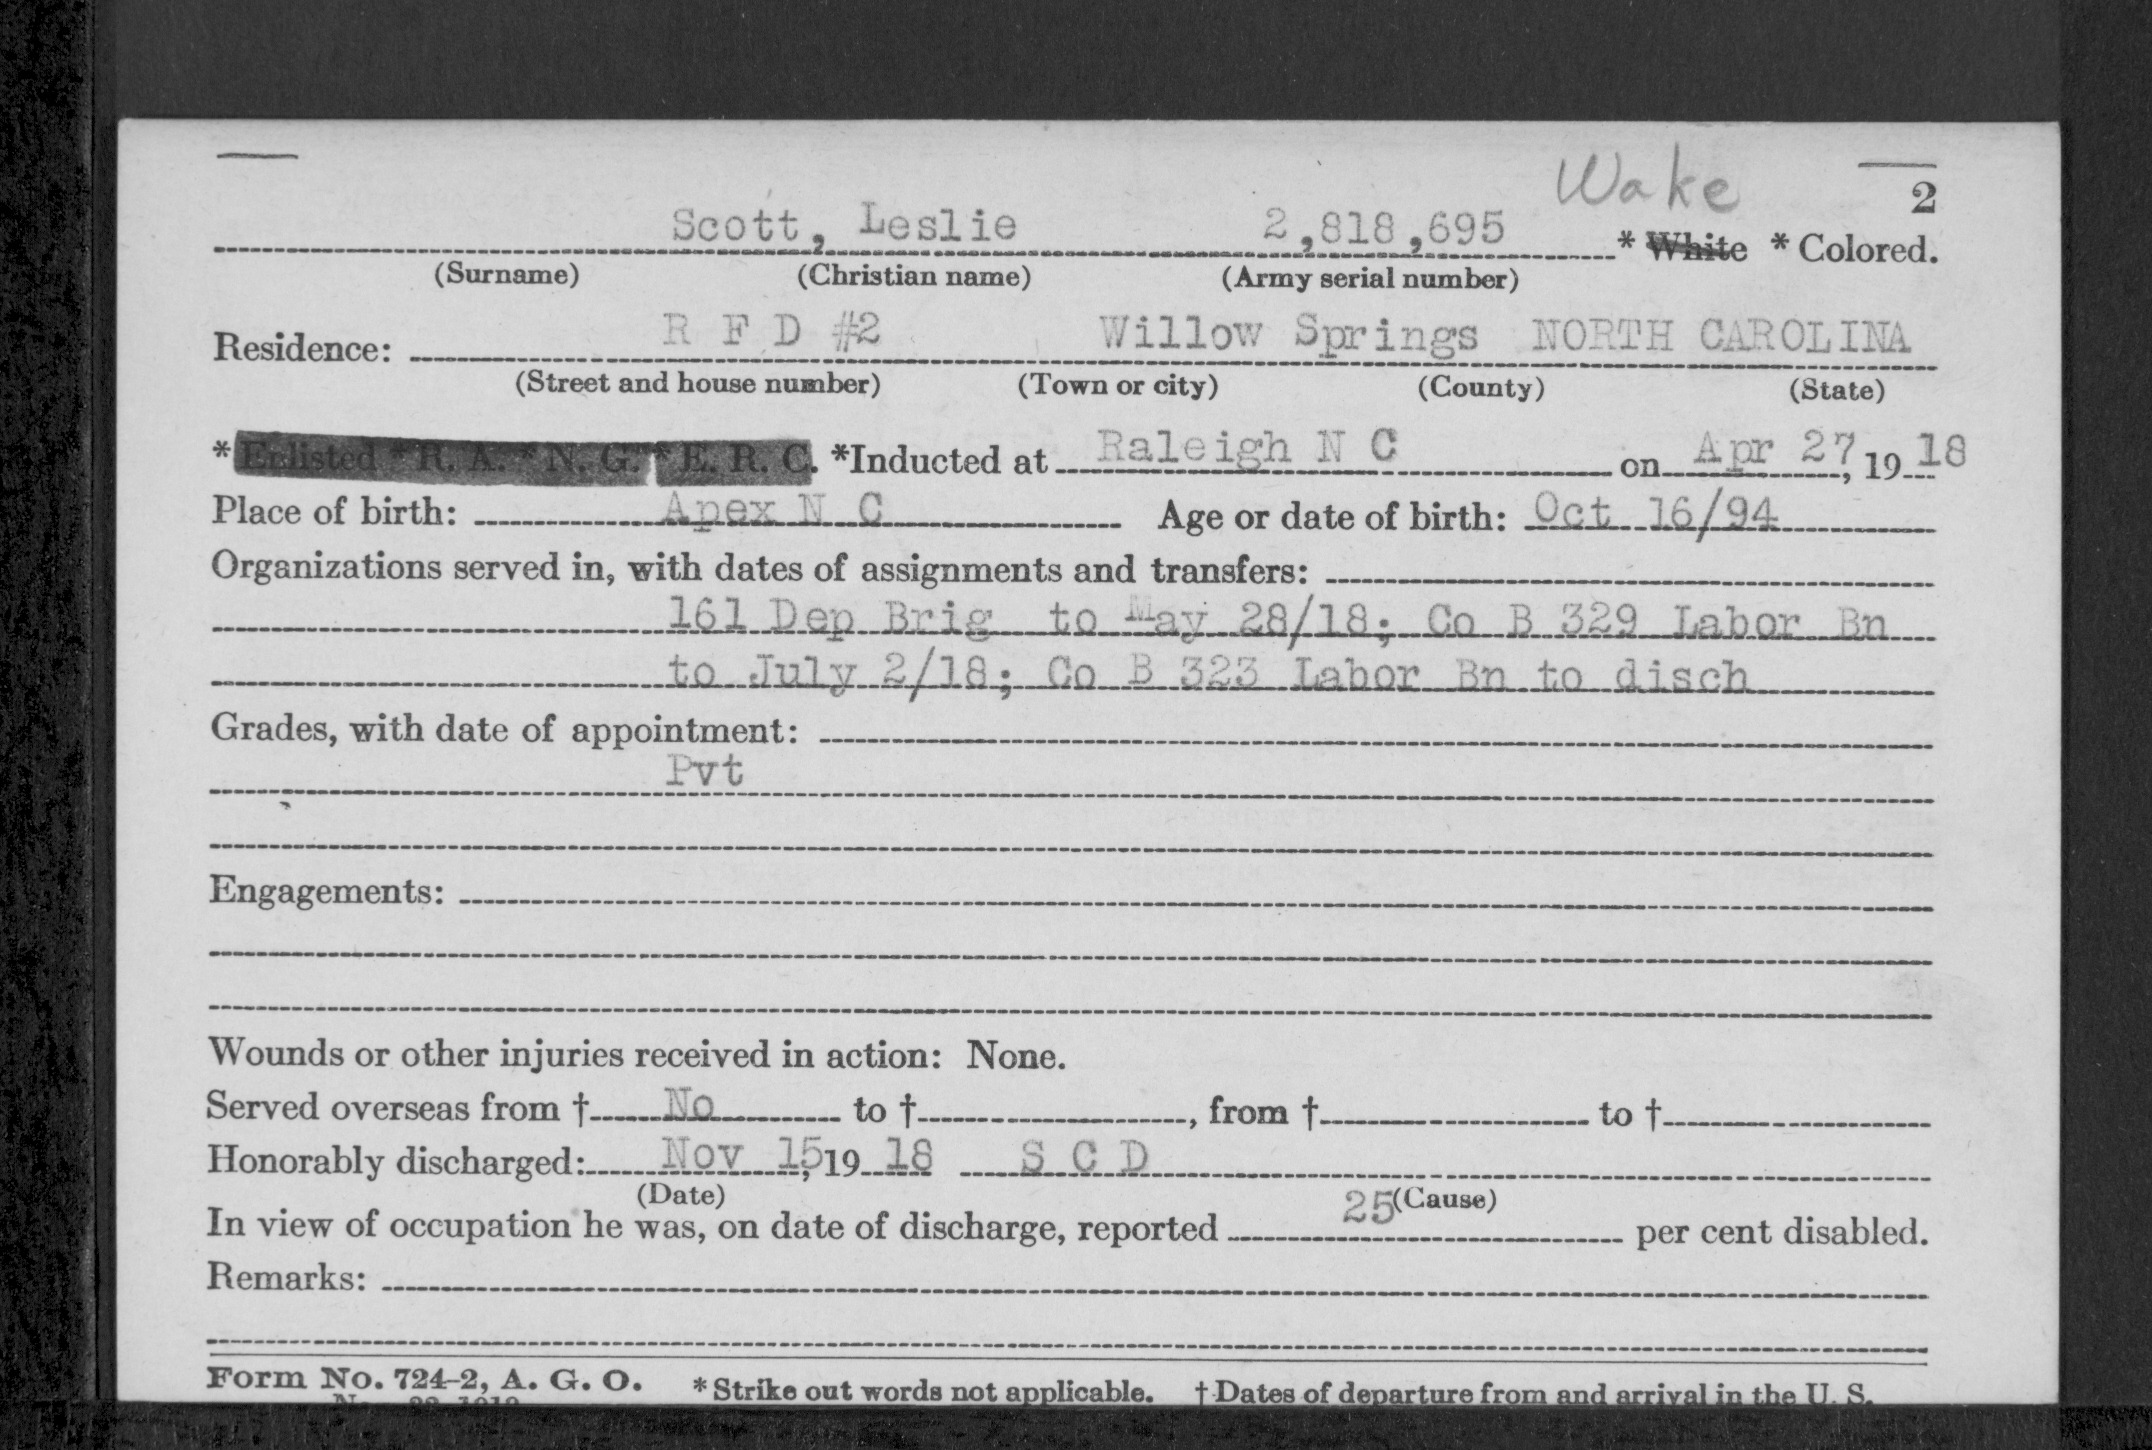 Wake
2
Scott, Leslie 2,818,695 * White * Colored.
(Surname) (Christian name) (Army serial number)
Residence: R F D #2 Willow Springs NORTH CAROLINA
(Street and house number) (Town or city) (County) (State)
*Enlisted *R. A. *N. G. *E. R. C. *Inducted at Raleigh N C on Apr 27, 19 18
Place of birth: Apex N C Age or date of birth: Oct 16/94
Organizations served in, with dates of assignments and transfers:
161 Dep Brig to May 28/18; Co B 329 Labor Bn
to July 2/18; Co B 323 Labor Bn to disch
Grades, with date of appointment:
Pvt
Engagements:
Wounds or other injuries received in action: None.
Served overseas from † No to †, from † to †
Honorably discharged: Nov 15, 19 18 S C D
(Date) (Cause)
In view of occupation he was, on date of discharge, reported 25 per cent disabled.
Remarks:
Form No. 724-2, A. G. O. *Strike out words not applicable. †Dates of departure from and arrival in the U. S.